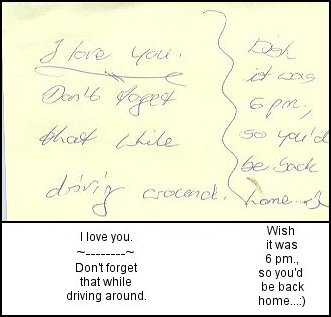 I love you.
Don't forget
that while
drivig around.
Wish
it was
6 pm.,
so you'd
be back
home..:)
I love you.
~--------~
Don't forget
that while
driving around.
Wish
it was
6 pm.,
so you'd
be back
home...:)